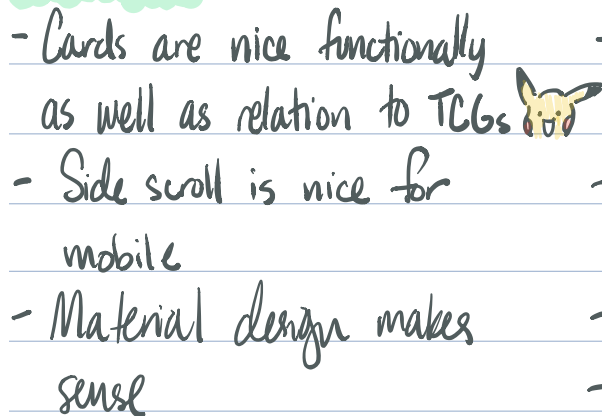 - Cards are nice functionally
as well as relation to TCGs
- Side scroll is nice for
mobile
- Material design makes
sense